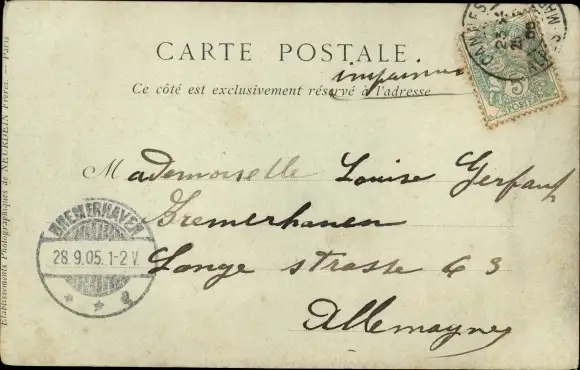 CARTE POSTALE
imprimé
Ce côté est exclusivement réservé à l'adresse
Mademoiselle Louise Gerfauf
Bremerhaven
Lange strasse 63
Allemagne
BREMERHAVEN
28.9.05.1-2 V.
CANNES
5
POSTES
Etablissements Photographiques de NEURDEIN Frères. — Paris